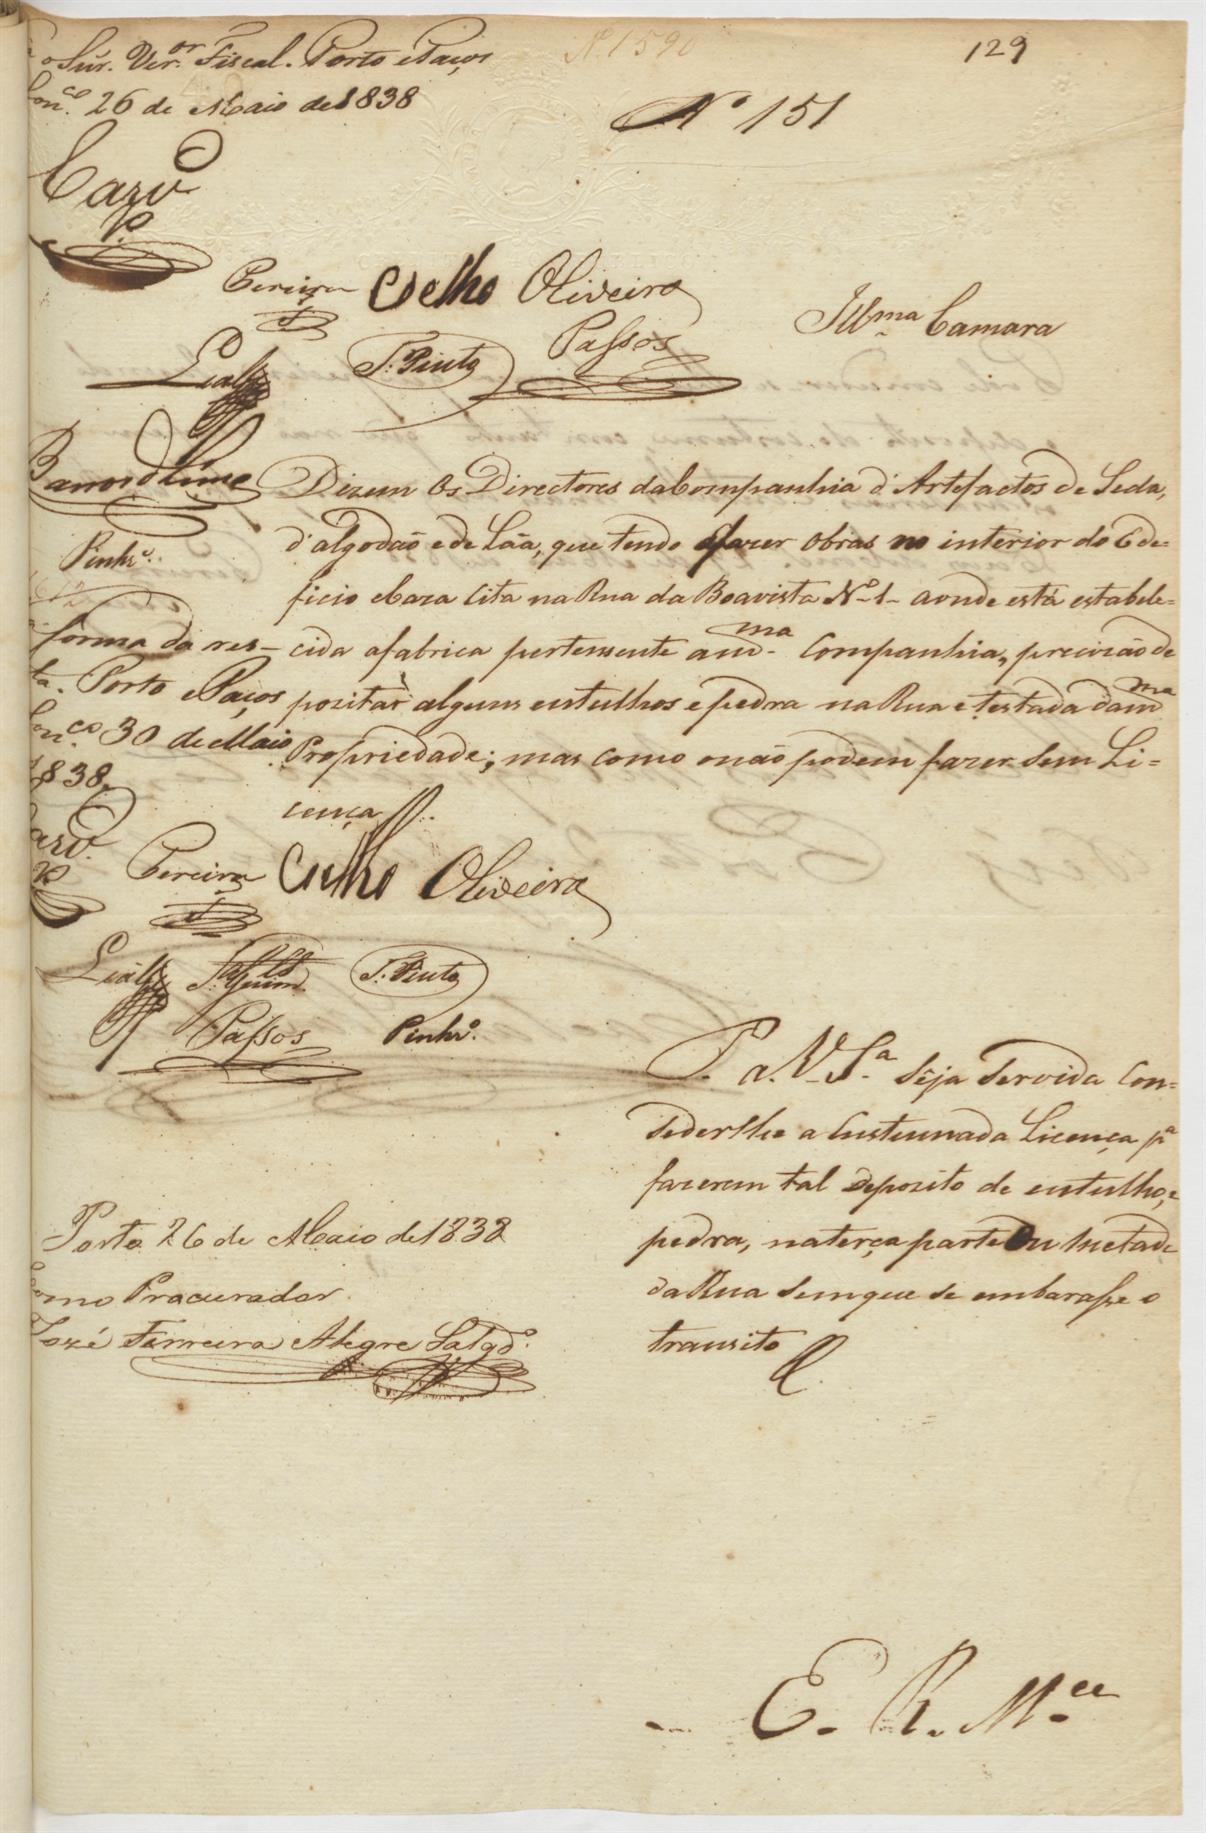 o Snr. Ver.or Fiscal. Porto e Paços
Conc.o 26 de Maio de 1838
Nº 1590
129
Nº 151
Carv.o
Pereira Coelho Oliveira
Leal T. Pinto Passos
Illma Camara
Barros Lima
Pinhr.o
Dizem Os Directores da Companhia d'Artefactos de Seda,
d'algodaõ e de Lãa, que tendo fazer obras no interior do Ede=
ficio e Caza Cita na Rua da Boavista Nº 1 aonde está estabele=
cida a fabrica pertensente a m.ma Companhia, precizão de
pozitar alguns entulhos e pedra na Rua e testada da m.ma
Propriedade; mas como o não podem fazer sem Li=
cença
forma da res-
ta. Porto e Paços
Conc.o 30 de Maio
1838
Carv.o
Pereira Coelho Oliveira
Leal Guim. T. Pinto
Passos Pinhr.o
P. a. V. S.a Sêja Servida Con=
sederlhe a Custumada Licença p.a
fazerem tal depozito de entulho, e
pedra, na terça parte Ou metade
da Rua Sem que se embarasse o
tranzito
Porto 26 de Maio de 1838
Como Procurador
Jozé Ferreira Alegre Salgd.o
E. R. M.ce